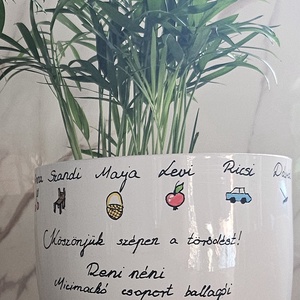 Szandi Maja Levi Ricsi
Köszönjük szépen a törődést!
Reni néni
Micimackó csoport ballagói